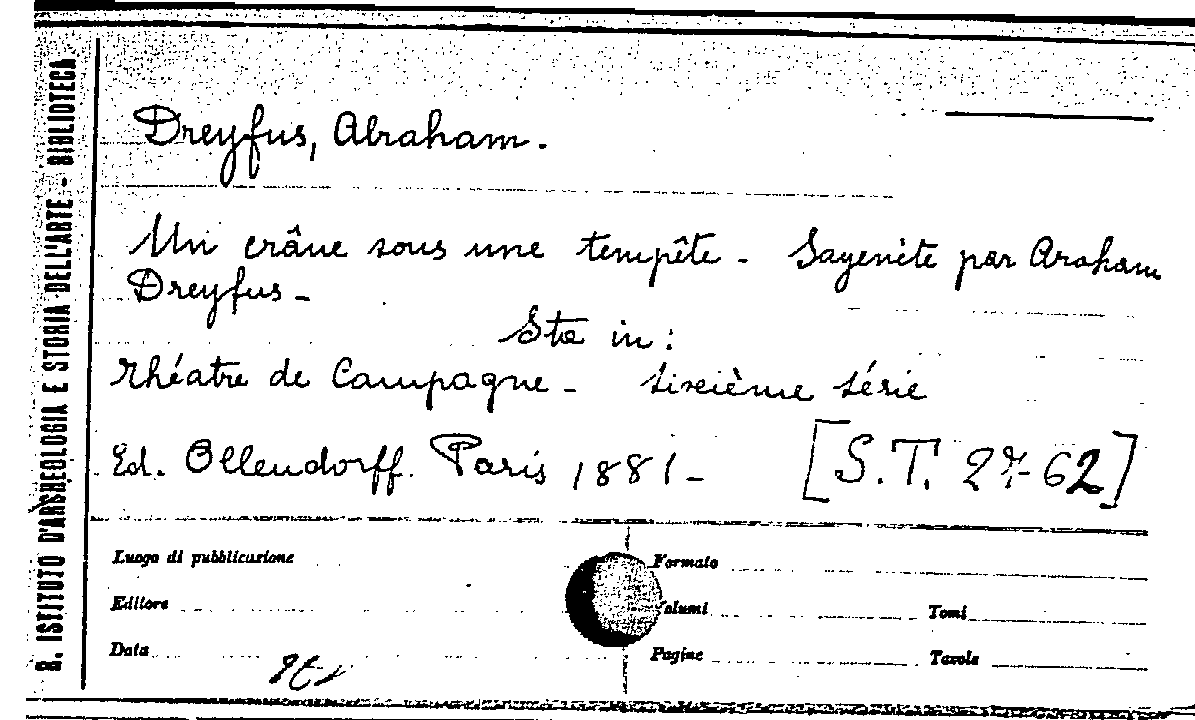 R. ISTITUTO D'ARCHEOLOGIA E STORIA DELL'ARTE - BIBLIOTECA
Dreyfus, Abraham.
Un crâne sous une tempête - Sayenète par Araham
Dreyfus -
Sta in:
Théatre de Campagne - sixième série
Ed. Ollendorff. Paris 1881 - [S.T. 27-62]
Luogo di pubblicazione
Formato
Editore
Volumi
Tomi
Data
Pagine
Tavole